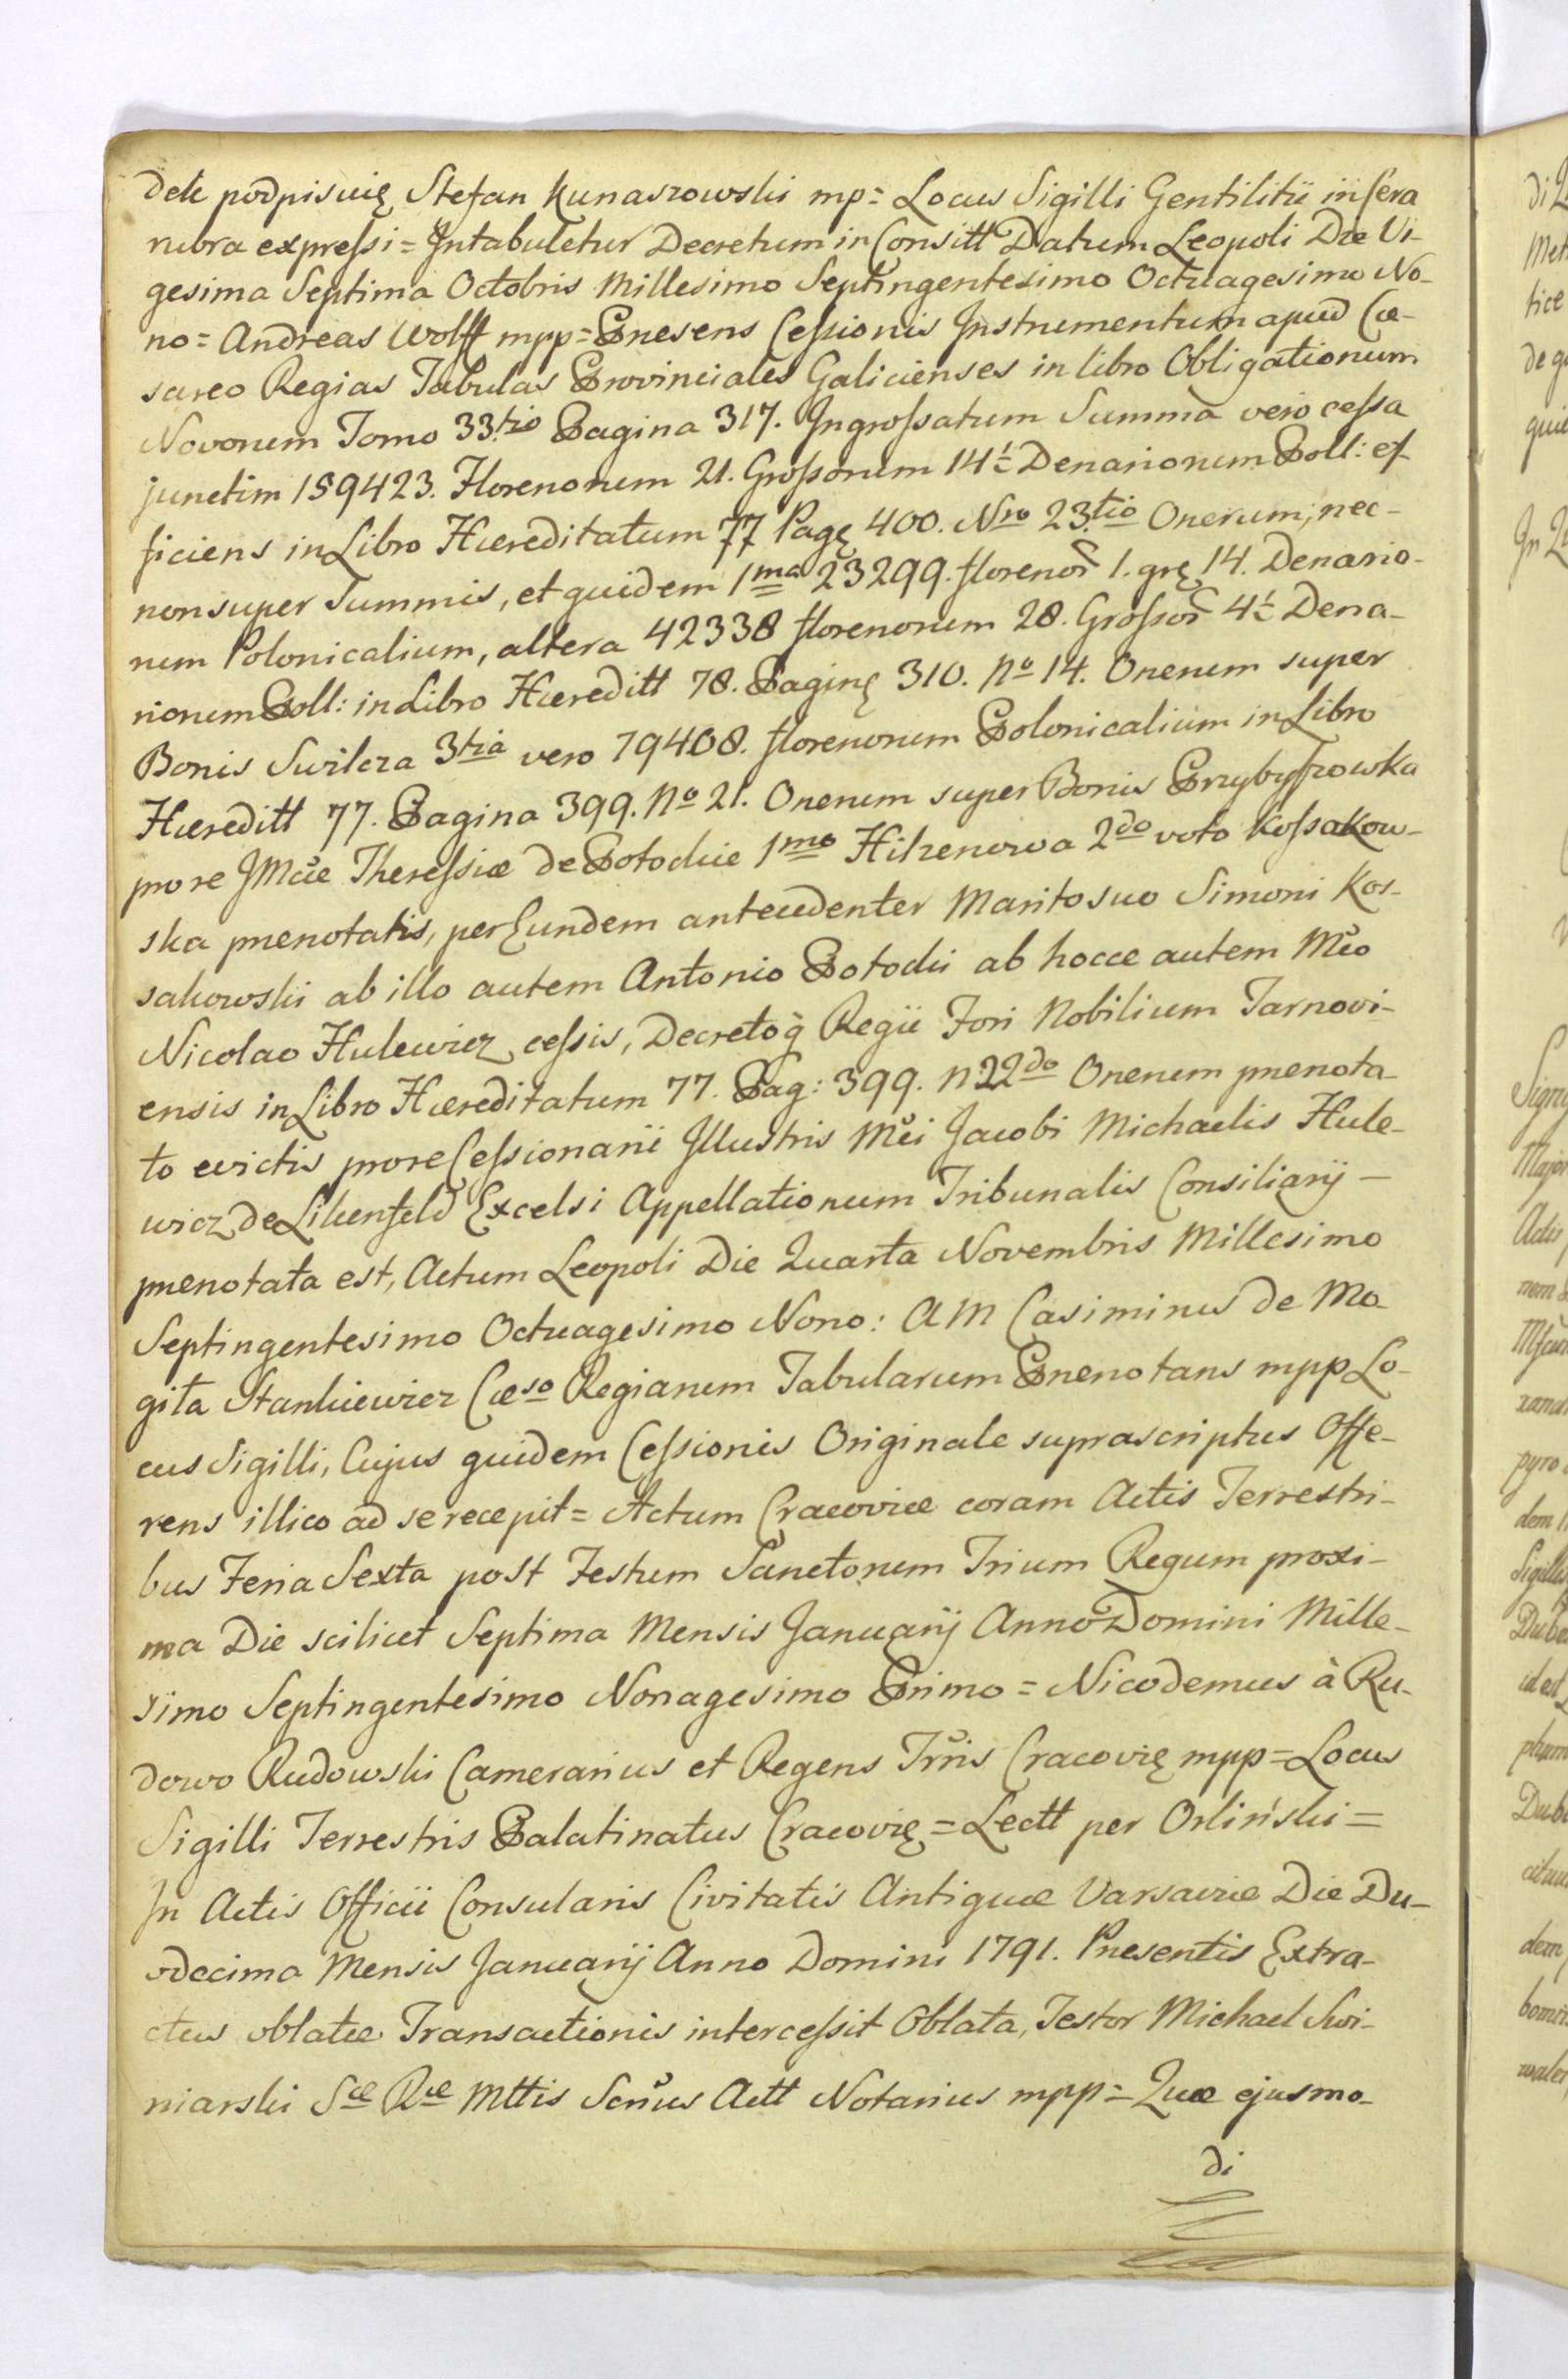 dek podpisuię Stefan Kunaszowski mp = Locus Sigilli Gentilitii in Cera
rubra expressi = Intabuletur Decretum in Consitt Datum Leopoli Die Vi-
gesima Septima Octobris Millesimo Septingentesimo Octuagesimo No-
no = Andreas Wolff mpp = Præsens Cessionis Instrumentum apud Cæ-
sareo Regias Tabulas Provinciales Galicienses in libro Obligationum
Novorum Tomo 33tio Pagina 317. Ingrossatum Summa vero cessa
junctim 159423. Florenorum 21. Grossorum 14½ Denariorum Poll: ef
ficiens in Libro Hæreditatum 77 Pagę 400. Nro 23tio Onerum, nec-
non super Summis, et quidem 1ma 23299. florenor 1. grę 14. Denario-
rum Polonicalium, altera 42338 florenorum 28. Grossor 4½ Dena-
riorum Poll: in Libro Hæreditt 78. Paginę 310. No 14. Onerum super
Bonis Swilcza 3tia vero 79408. florenorum Polonicalium in Libro
Hæreditt 77. Pagina 399. No 21. Onerum super Bonis Przybyszowka
prore JMcæ Theressiæ de Potockie 1mo Hilzenowa 2do voto Kossakow-
ska prænotatis, per Eundem antecedenter Marito suo Simoni Kos-
sakowski ab illo autem Antonio Potocki ab hocce autem Mco
Nicolao Hulewicz cessis, Decretoq Regii Fori Nobilium Tarnovi-
ensis in Libro Hæreditatum 77. Pag: 399. n 22do Onerum prænota
to evictis prore Cessionarii Illustris Mci Jacobi Michaelis Hule-
wicz de Lilienfeld Excelsi Appellationum Tribunalis Consiliarij –
prænotata est, Actum Leopoli Die Quarta Novembris Millesimo
Septingentesimo Octuagesimo Nono: AM Casimirus de Mo-
giła Stankiewicz Cæso Regiarum Tabularum Prænotans mpp Lo-
cus Sigilli, Cujus quidem Cessionis Originale suprascriptus Offe-
rens illico ad se recepit = Actum Cracoviæ coram Actis Terrestri-
bus Feria Sexta post Festum Sanctorum Trium Regum proxi-
ma Die scilicet Septima Mensis Januarij Anno Domini Mille-
simo Septingentesimo Nonagesimo Primo = Nicodemus à Ru-
dowo Rudowski Camerarius et Regens Trris Cracovię mpp = Locus
Sigilli Terrestris Palatinatus Cracovię = Lectt per Orliński =
In Actis Officii Consularis Civitatis Antiquæ Varsaviæ Die Du-
odecima Mensis Januarij Anno Domini 1791. Præsentis Extra-
ctus oblatæ Transactionis intercessit Oblata, Testor Michael Swi-
niarski Sæ Ræ Mttis Secrius Actt Notarius mpp = Quæ ejusmo-
di